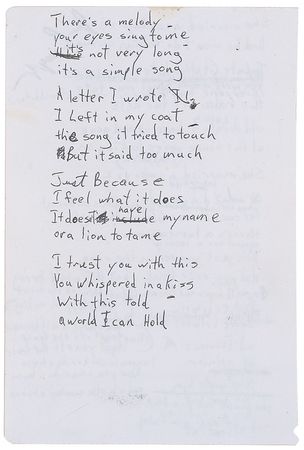 There's a melody -
your eyes sing to me
it's not very long -
it's a simple song
A letter I wrote
I Left in my coat -
the song it tried to touch
But it said too much
Just Because
I feel what it does
It doesn't have my name
or a lion to tame
I trust you with this
You whispered in a kiss
With this told -
a world I can Hold